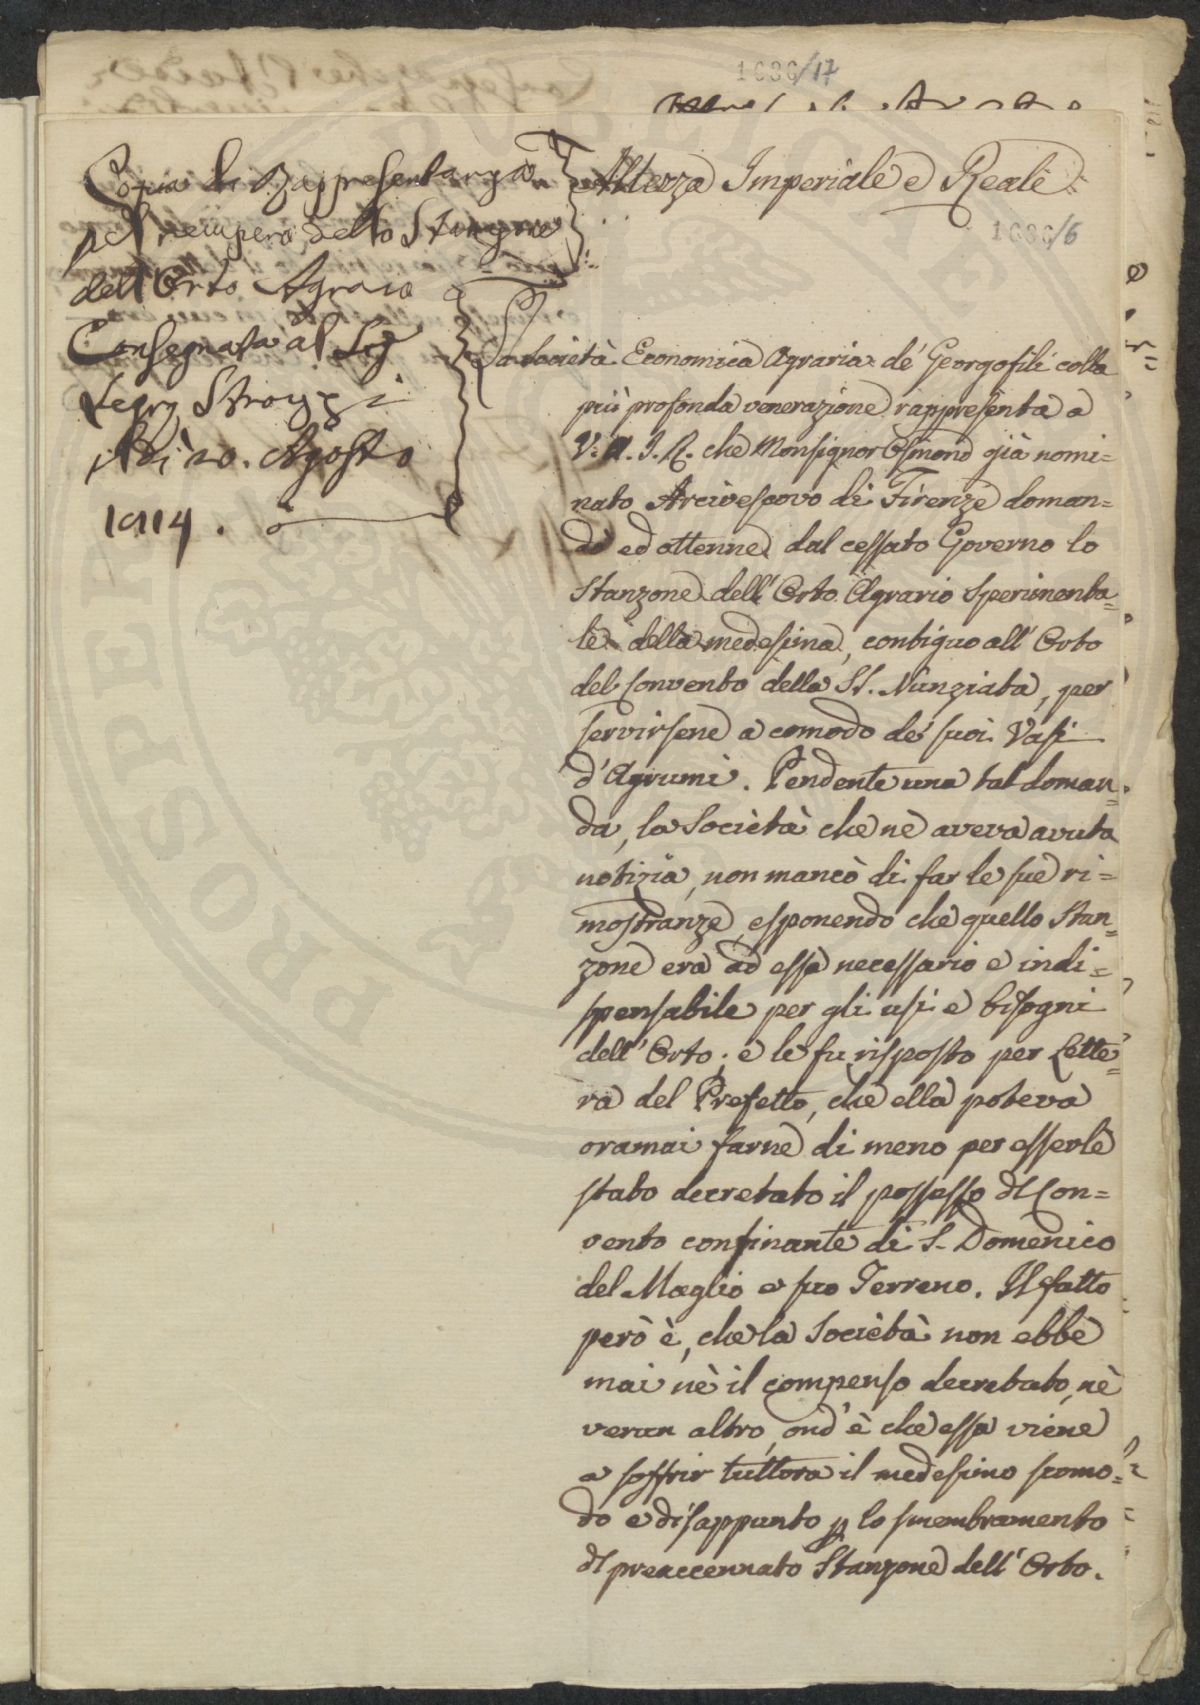 1636/17
Copia di Rappresentanza
pel recupero dello Stanzone
dell'Orto Agrario
Consegnata al Sig.
Strozzi
Adì 20. Agosto
1814.
Altezza Imperiale e Reale
1636/6
La Società Economica Agraria de' Georgofili colla
più profonda venerazione rappresenta a
V. A. I. R. che Monsignor Osmond già nomi=
nato Arcivescovo di Firenze doman=
dò ed ottenne dal cessato Governo lo
Stanzone dell'Orto Agrario Sperimenta=
le della medesima, contiguo all'Orto
del Convento della SS. Nunziata, per
servirsene a comodo de' suoi Vasi
d'Agrumi. Pendente una tal doman=
da, la Società che ne aveva avuta
notizia, non mancò di far le sue ri=
mostranze, esponendo che quello Stan=
zone era ad essa necessario e indi=
spensabile per gli usi e bisogni
dell'Orto; e le fu risposto per Lette=
ra del Prefetto, che ella poteva
oramai farne di meno per esserle
stato decretato il possesso del Con=
vento confinante di S. Domenico
del Maglio e suo Terreno. Il fatto
però è, che la Società non ebbe
mai nè il compenso decretato, nè
verun altro, ond'è che essa viene
a soffrir tuttora il medesimo scomo=
do e disappunto p lo smembramento
del preaccennato Stanzone dell'Orto.
PROSPERITATI